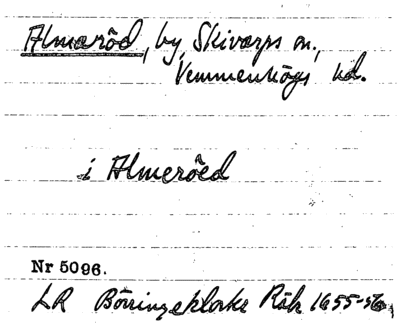 Almaröd, by, Skivarps sn.,
Vemmenhögs hd.
i Almeröed
Nr 5096.
LR Börringekloster Räk 1655-56